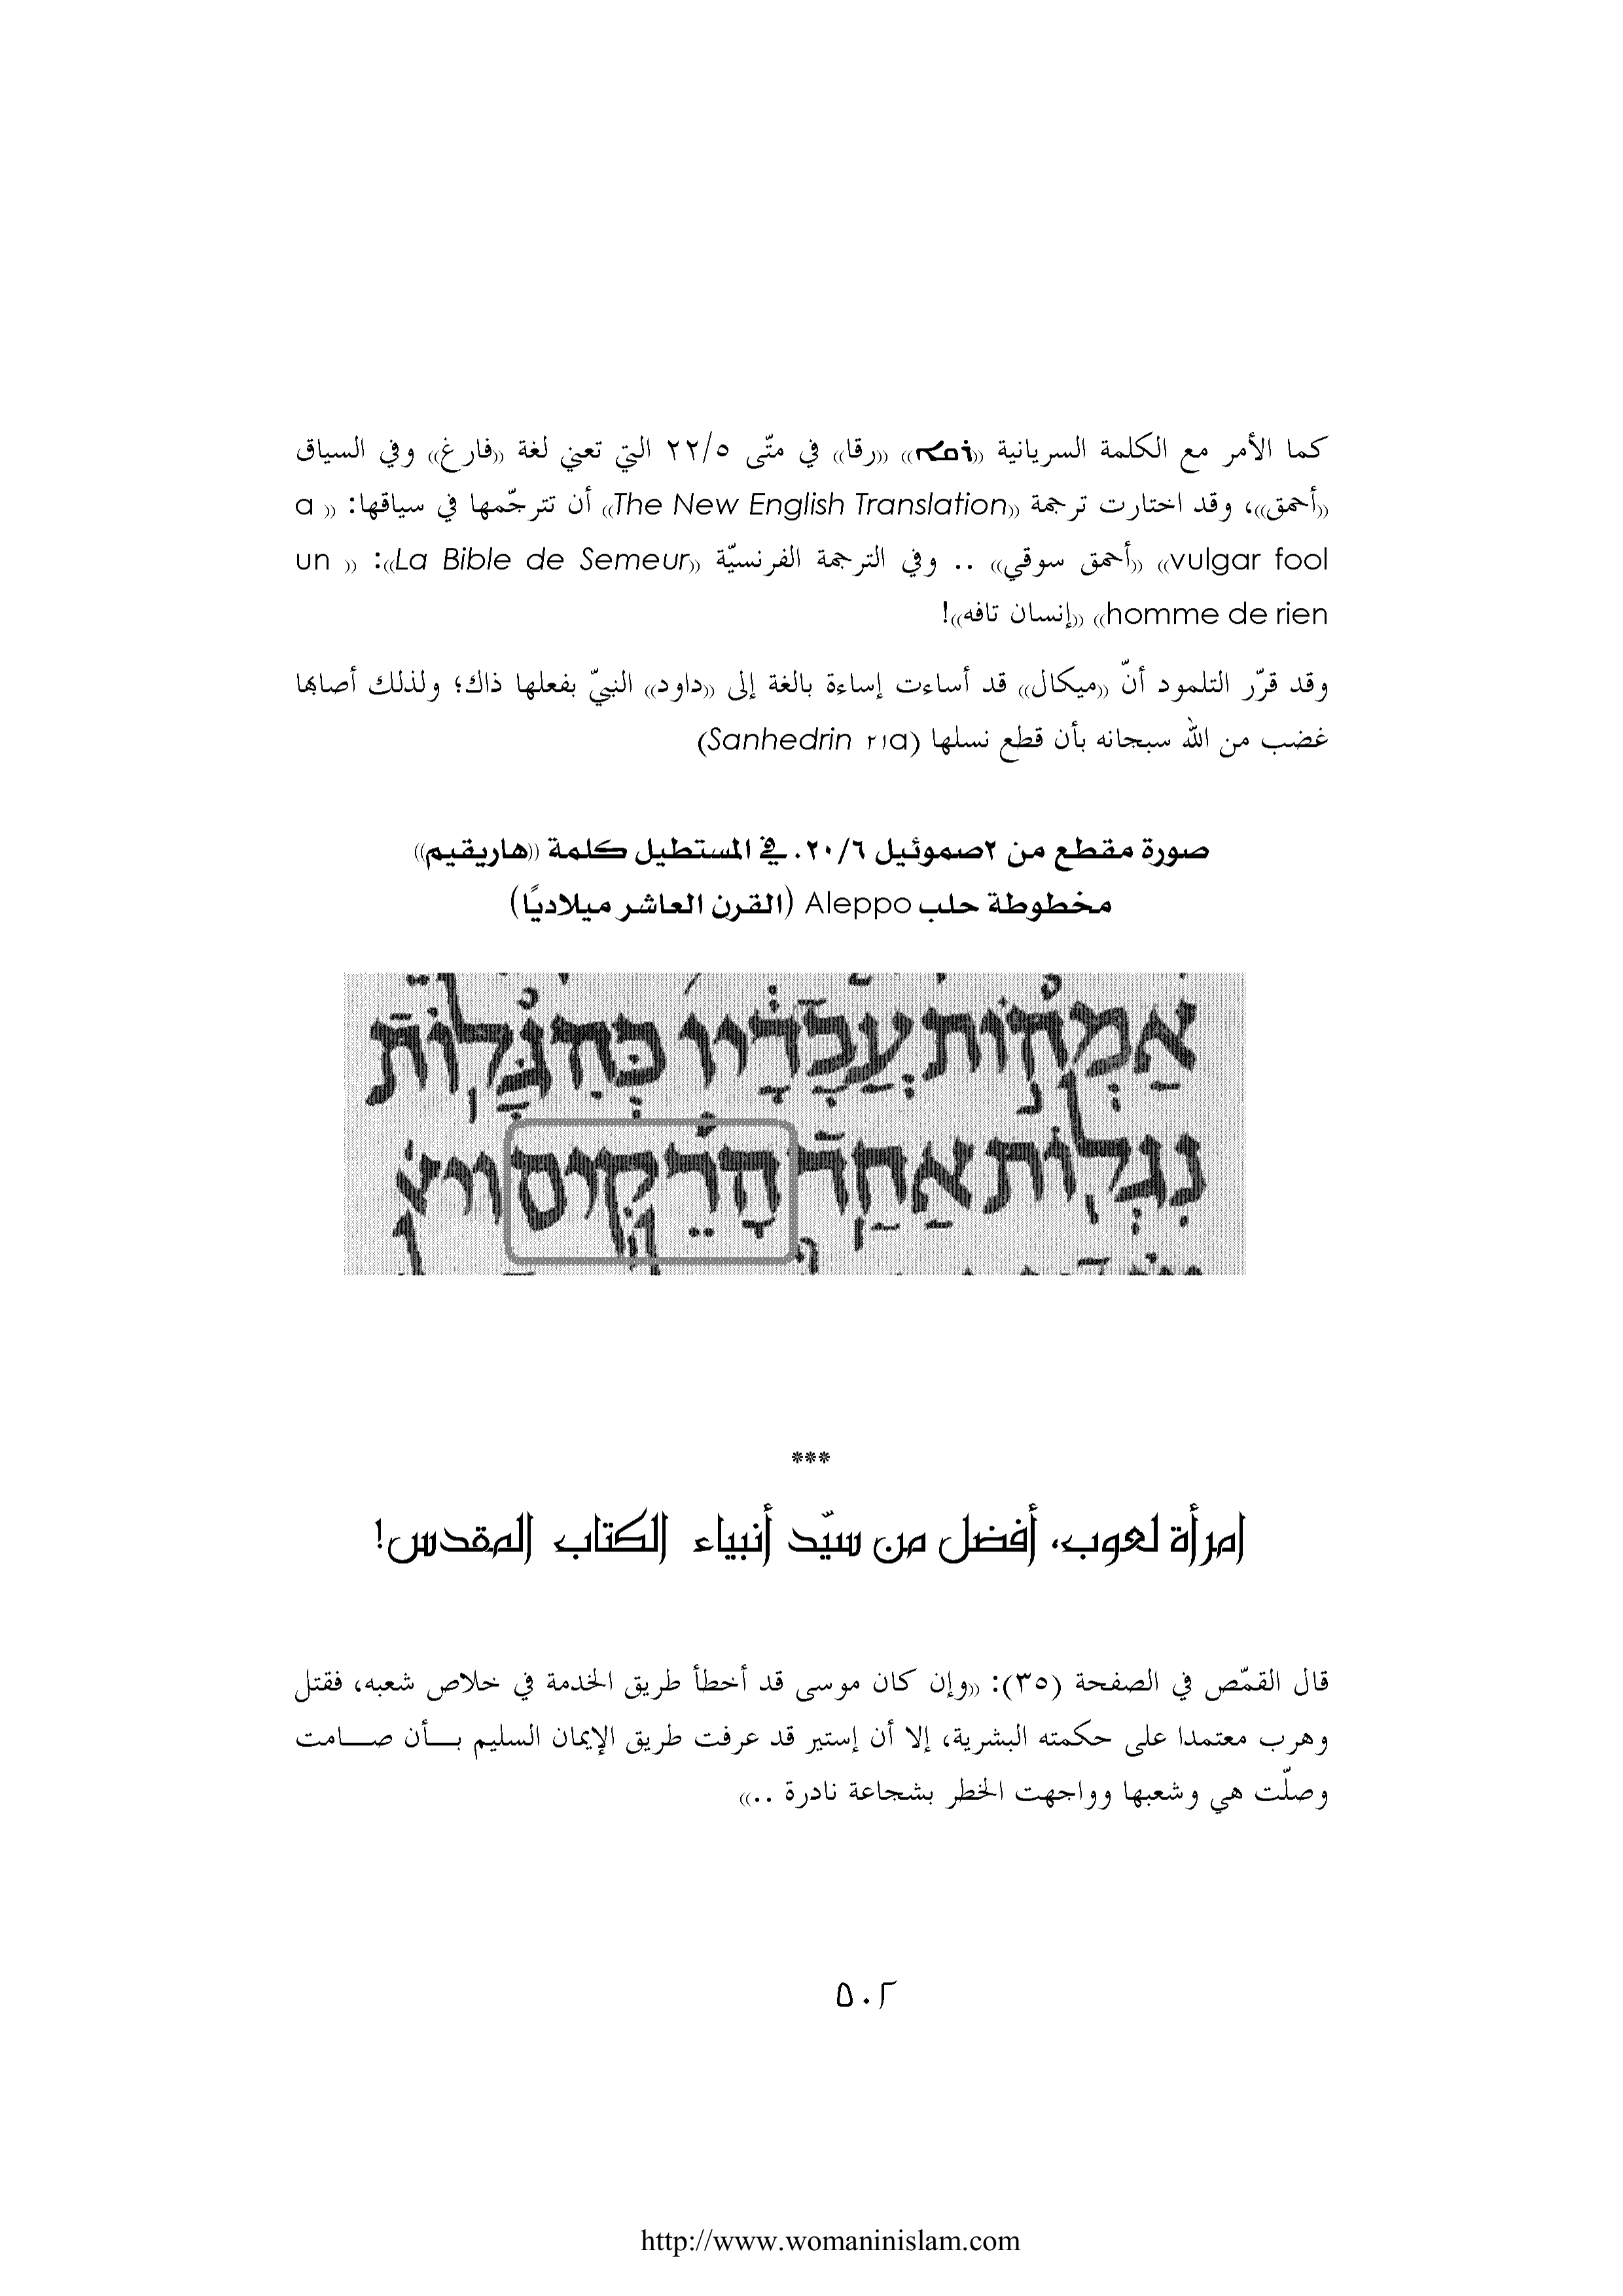 كما الأمر مع الكلمة السريانية ((ܪܩܐ)) ((رقا)) في متّى ٢٢/٥ التي تعني لغة ((فارغ)) وفي السياق
((أحمق))، وقد اختارت ترجمة ((The New English Translation)) أن تترجّمها في سياقها: (( a
vulgar fool)) ((أحمق سوقي)) .. وفي الترجمة الفرنسيّة ((La Bible de Semeur)): (( un
homme de rien)) ((إنسان تافه))!
وقد قرّر التلمود أنّ ((ميكال)) قد أساءت إساءة بالغة إلى ((داود)) النبيّ بفعلها ذاك؛ ولذلك أصابها
غضب من الله سبحانه بأن قطع نسلها (Sanhedrin ٢١a)
صورة مقطع من ٢صموئيل ٢٠/٦. في المستطيل كلمة ((هاريقيم))
مخطوطة حلب Aleppo (القرن العاشر ميلاديًا)
אַמְה֣וֹת עֲבָדָ֔יו כְּהִגָּל֥וֹת
נִגְל֖וֹת אַחַ֥ד הָרֵקִֽים ויא
***
امرأة لعوب، أفضل من سيّد أنبياء الكتاب المقدس!
قال القمّص في الصفحة (٣٥): ((وإن كان موسى قد أخطأ طريق الخدمة في خلاص شعبه، فقتل
وهرب معتمدا على حكمته البشرية، إلا أن إستير قد عرفت طريق الإيمان السليم بـــأن صـــامت
وصلّت هي وشعبها وواجهت الخطر بشجاعة نادرة ..))
٥٠٢
http://www.womaninislam.com